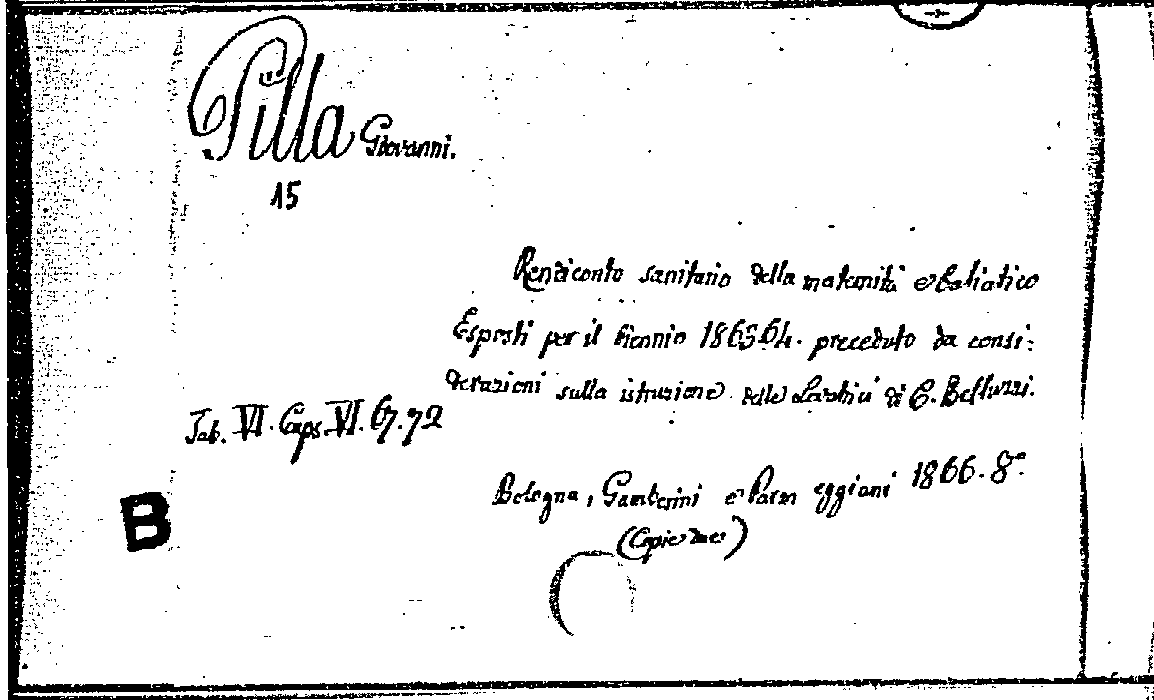 Pilla Giovanni.
15
Rendiconto sanitario della maternità e baliatico
Esposti per il biennio 1863.64. preceduto da consi-
derazioni sulla istruzione delle Levatrici di C. Belluzzi.
Tab. VI. Caps. VI. 67.72
Bologna, Gamberini e Parmeggiani 1866. 8º
(Copie due)
B